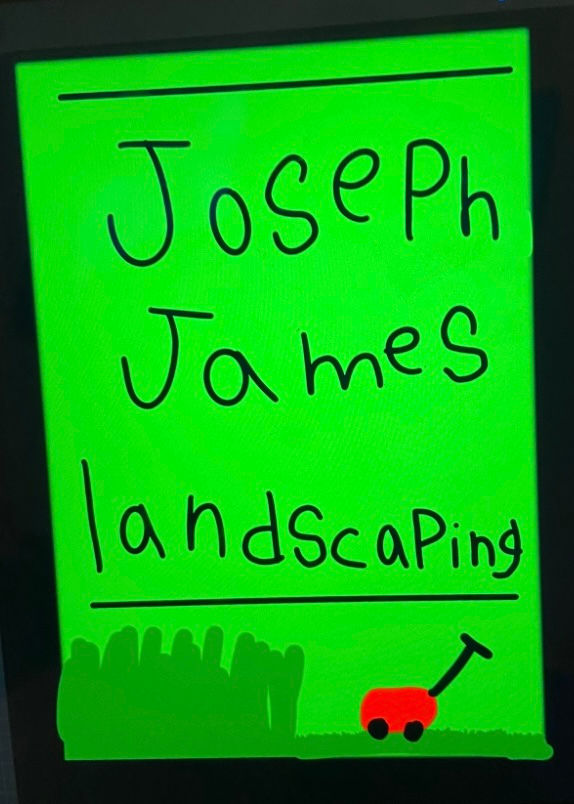 Joseph
James
landscaping